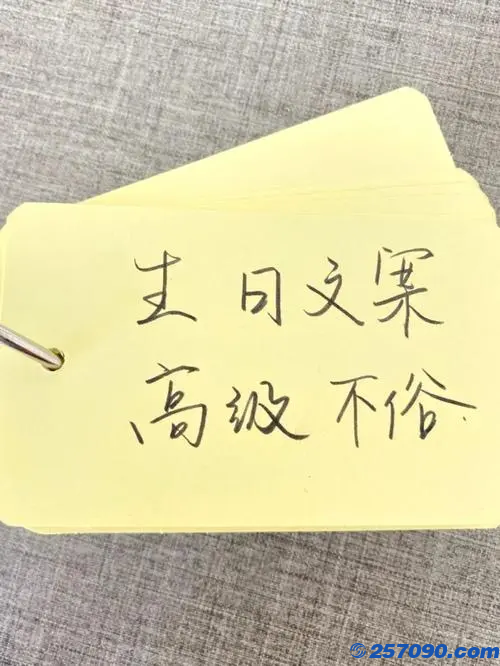 生日文案
高级不俗.
257090.com